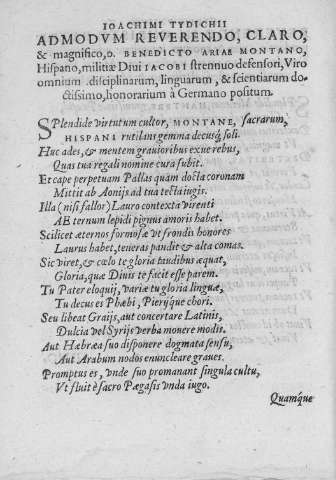 IOACHIMI TYDICHII
ADMODVM REVERENDO, CLARO,
& magnifico, D. BENEDICTO ARIAE MONTANO,
Hispano, militiæ Diui IACOBI strennuo defensori, Viro
omnium disciplinarum, linguarum, & scientiarum do-
ctissimo, honorarium à Germano positum.
SPlendide virtutum cultor, MONTANE, sacrarum,
HISPANI rutilans gemma decusq́; soli.
Huc ades, & mentem grauioribus exue rebus,
Quas tua regali nomine cura subit.
Et cape perpetuam Pallas quàm docta coronam
Mittit ab Aonijs ad tua tecta iugis.
Illa (nisi fallor) Lauro contexta virenti
AB ternum lepidi pignus amoris habet.
Scilicet æternos formosæ vt frondis honores
Laurus habet, teneras pandit & alta comas.
Sic viret, & cælo te gloria laudibus æquat,
Gloria, quæ Diuis te facit esse parem.
Tu Pater eloquij, variæ tu gloria linguæ,
Tu decus es Phæbi, Pierijq́ue chori.
Seu libeat Graijs, aut concertare Latinis,
Dulcia vel Syrijs verba mouere modis.
Aut Hæbræa suo disponere dogmata sensu,
Aut Arabum nodos enucleare graues.
Promptus es, vnde suo promanant singula cultu,
Vt fluit è sacro Pægasis vnda iugo.
Quamq́ue